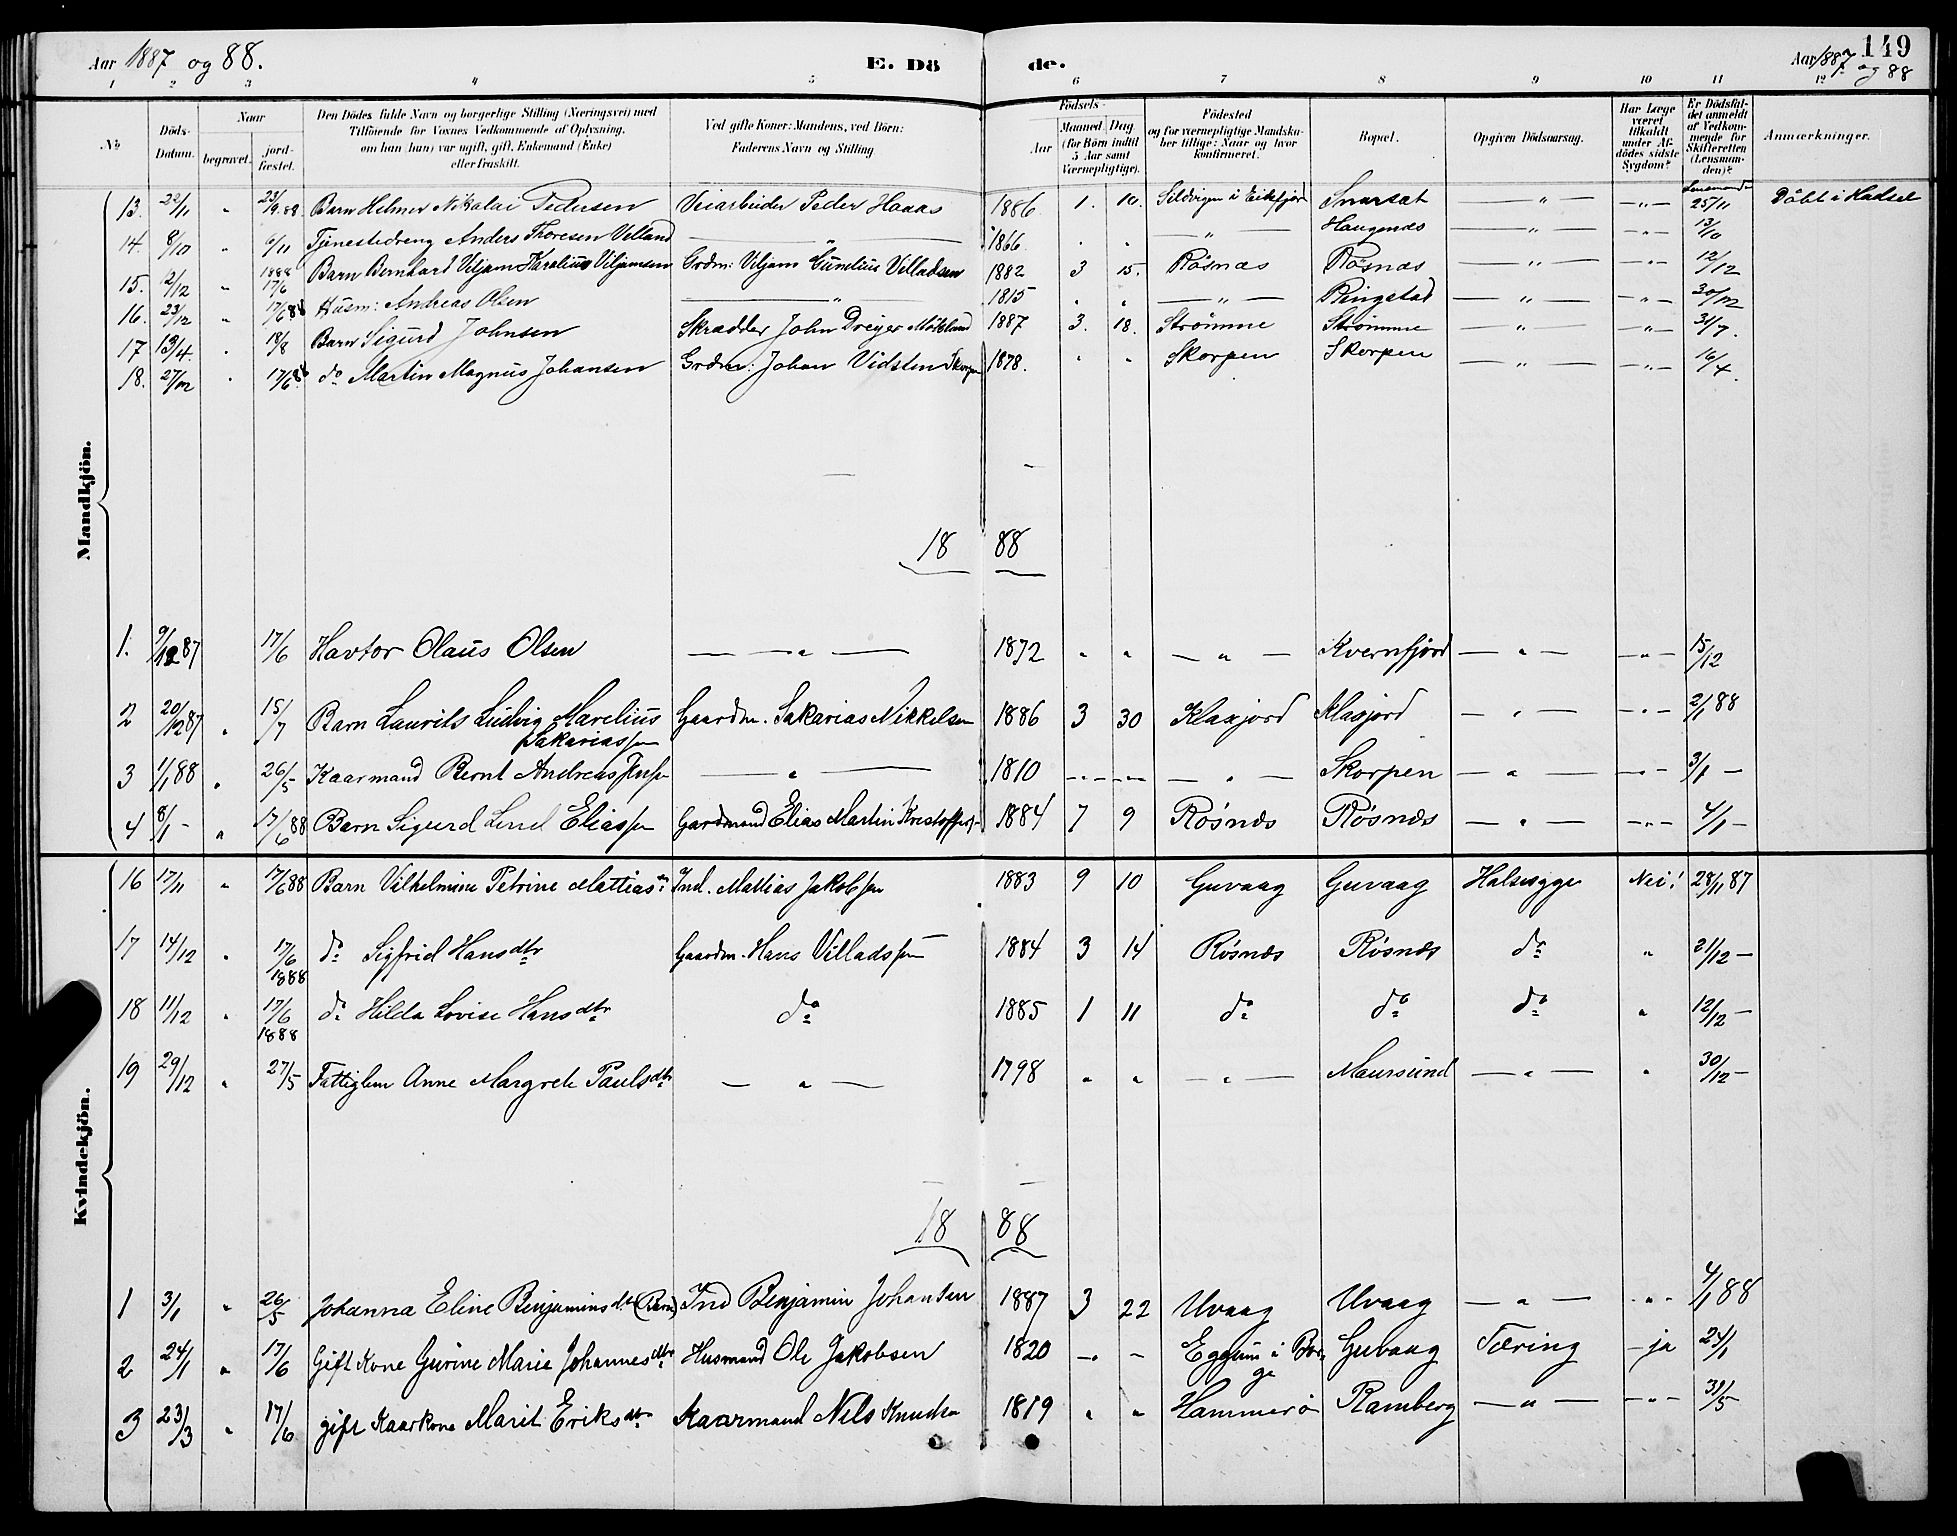 Aar 1887 og 88. E. Dö de. Aar 1887 og 88 149
1 2 3 4 5 6 7 8 9 10 11 12
No
Döds-Datum.
Naar
begravet.
jord-fæstet.
Den Dödes fulde Navn og borgerlige Stilling (Næringsvei) med
Tilföiende for Voxnes Vedkommende af Oplysning,
om han (hun) var ugift, gift, Enkemand (Enke)
eller fraskilt.
Ved gifte Koner: Mandens, ved Börn:
Faderens Navn og Stilling
Födsels-
Aar
Maaned Dag
(for Börn indtil
5 Aar samt
Værnepligtige).
Födested
og for værnepligtige Mandska-
ber tillige: Naar og hvor
konfirmeret.
Bopæl.
Opgiven Dödsaarsag.
Har Læge
været
tilkaldt
under Af-
dödes sidste
Sygdom?
Er Dödsfal-
det anmeldt
af Vedkom-
mende for
Skifteretten
(Lensman-
den)?
Anmærkninger.
Mandkjön.
13. 22/11 " 23/9.88 Barn Helmer Nikolai Pedersen Veiarbeider Peder Haaas 1886 1. 10. Sildvigen i Eiksfjord Snarsat — " — — " — Lensmand 25/11 Döbt i Hadsel
14. 8/10 " 6/11 Tjenestedreng Anders Thoresen Velland — " — 1866 " " — " — Haugenes — " — — " — 13/10
15. 2/12 " 1888 17/6 Barn Bernhard Viljam Karolius Viljamsen Grdm: Viljam Gunelius Villadsen 1882 3 15. Røsnæs Røsnæs — " — — " — 12/12
16. 23/12 " 17/6 88 Husm: Andreas Olsen — " — 1815 " " — " — Ringstad — " — — " — 30/12
17 13/4 " 18/8 Barn Sigurd Johnsen Skrædder John Dreyer Mökland 1887 3. 18. Strömme Strömme — " — — " — 31/7.
18. 27/12 " 17/6 88 do Martin Magnus Johansen Grdm: Johan Vidsten Skorpen 1878. " " Skorpen Skorpen — " — — " — 16/4.
18 88
1. 9/12 87 17/6 Havtor Olaus Olsen — " — 1872 " " — " — Kvernfjord — " — — " — 15/12
2 20/12 87 " 15/7 Barn Laurits Ludvig Marelius Sakariassen Gaardm. Sakarias Nikkelsen 1886 3 30 Klaxjord Klaxjord — " — — " — 2/1 88
3 1/1 88 " 26/5 Kaarmand Bernt Andreas Jensen — " — 1810 — " — — " — Skorpen — " — — " — 3/1 —
4 8/1 - " 17/6 88 Barn Sigurd Lind Eliassen Gardmand Elias Martin Kristoffers. 1884 7 9 Røsnæs Røsnæs — " — — " — 4/1 —
Kvindekjön.
16 17/11 " 17/6 88 Barn Vilhelmine Petrine Mattiasdtr. Ind. Mattias Jakobsen 1883 9 10 Guvaag Guvaag Halssyge Nei! 28/11 87
17 14/12 " 17/6 1888 do Sigfrid Hansdtr Gaardm. Hans Villadssen 1884 3 14 Røsnæs Røsnæs do " 21/12 —
18 11/12 " 17/6 1888 do Hilda Lovise Hansdtr do 1885 1 11 do do do " 12/12 —
19 29/12 " 27/5 Fattiglem Anne Margrete Paulsdtr — " — 1798 " " — " — Maursund — " — " 30/12 —
18 88
1 3/1 " 26/5 Johanna Eline Benjaminsdtr (Barn) Ind Benjamin Johansen 1887 3 22 Uvaag Uvaag — " — " 4/1 88
2 24/1 " 17/6 Gift Kone Gurine Marie Johannesdtr Husmand Ole Jakobsen 1820 — " — Eggum i Borge Guvaag Tæring - ja 24/1
3 23/3 " 17/6 gift Kaarkone Marit Eriksdtr Kaarmand Nils Knudsen 1819 " " Hammerö Ramberg — " — — " — 31/5